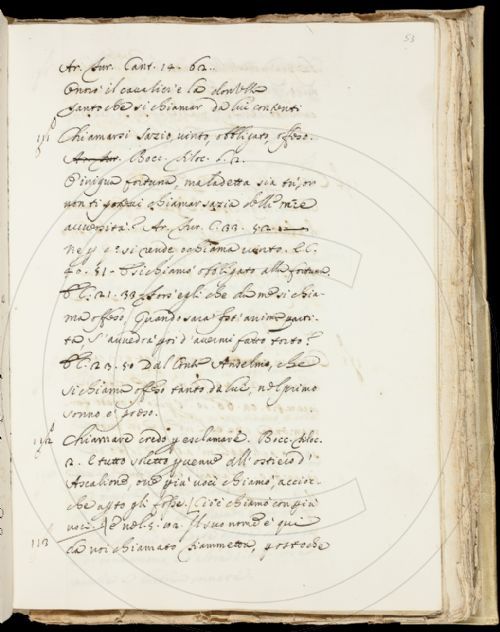 53
Ar. fur. Cant. 14. 62.
Onorò il cavalliere e la donzella
tanto che si chiamar da lui contenti
111 Chiamarsi sazio, vinto, obbligato, offeso.
Bocc. filoc. l. 2.
O iniqua fortuna, maladetta sia tu, or
non ti potevi chiamar sazia delle mie
avversità? Ar. fur. C. 33. 52.
Ne si rende o chiama vinto. E C.
40. 51. E si chiama obbligato alla fortuna.
E C. 21. 33 forse egli che di me si chia-
ma offeso, Quando sarà
ta, s'avvedrà poi d'avermi fatto torto?
E C. 23. 50 Dal Conte Anselmo, che
si chiama offeso tanto da lui, nel primo
sonno è preso.
112 Chiamare credo p esclamare. Bocc. filoc.
2. E tutto soletto pervenne all'ostiero d'
Ascalione, ove più voci chiamò, accioc-
che aperto gli fosse. Cioè chiamò con più
voci. E nel 5. Il suo nome è qui
da noi chiamato Fiammetta, postoche
113